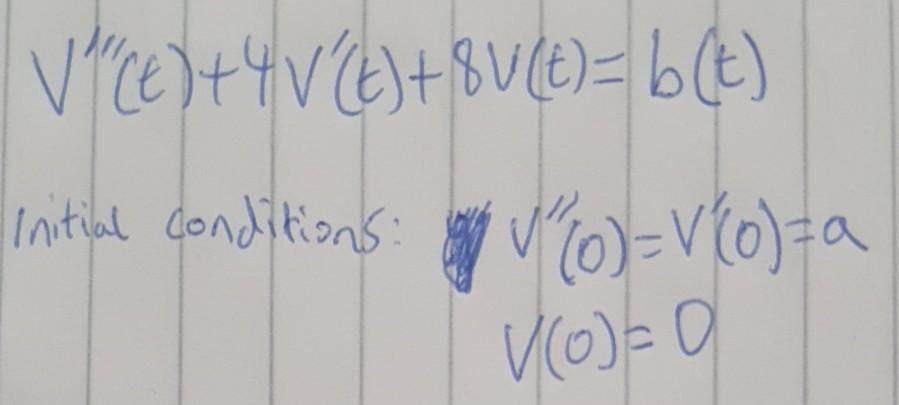 V'''(t)+4V'(t)+8V(t)=b(t)
Initial conditions: V''(0)=V'(0)=a
V(0)=0